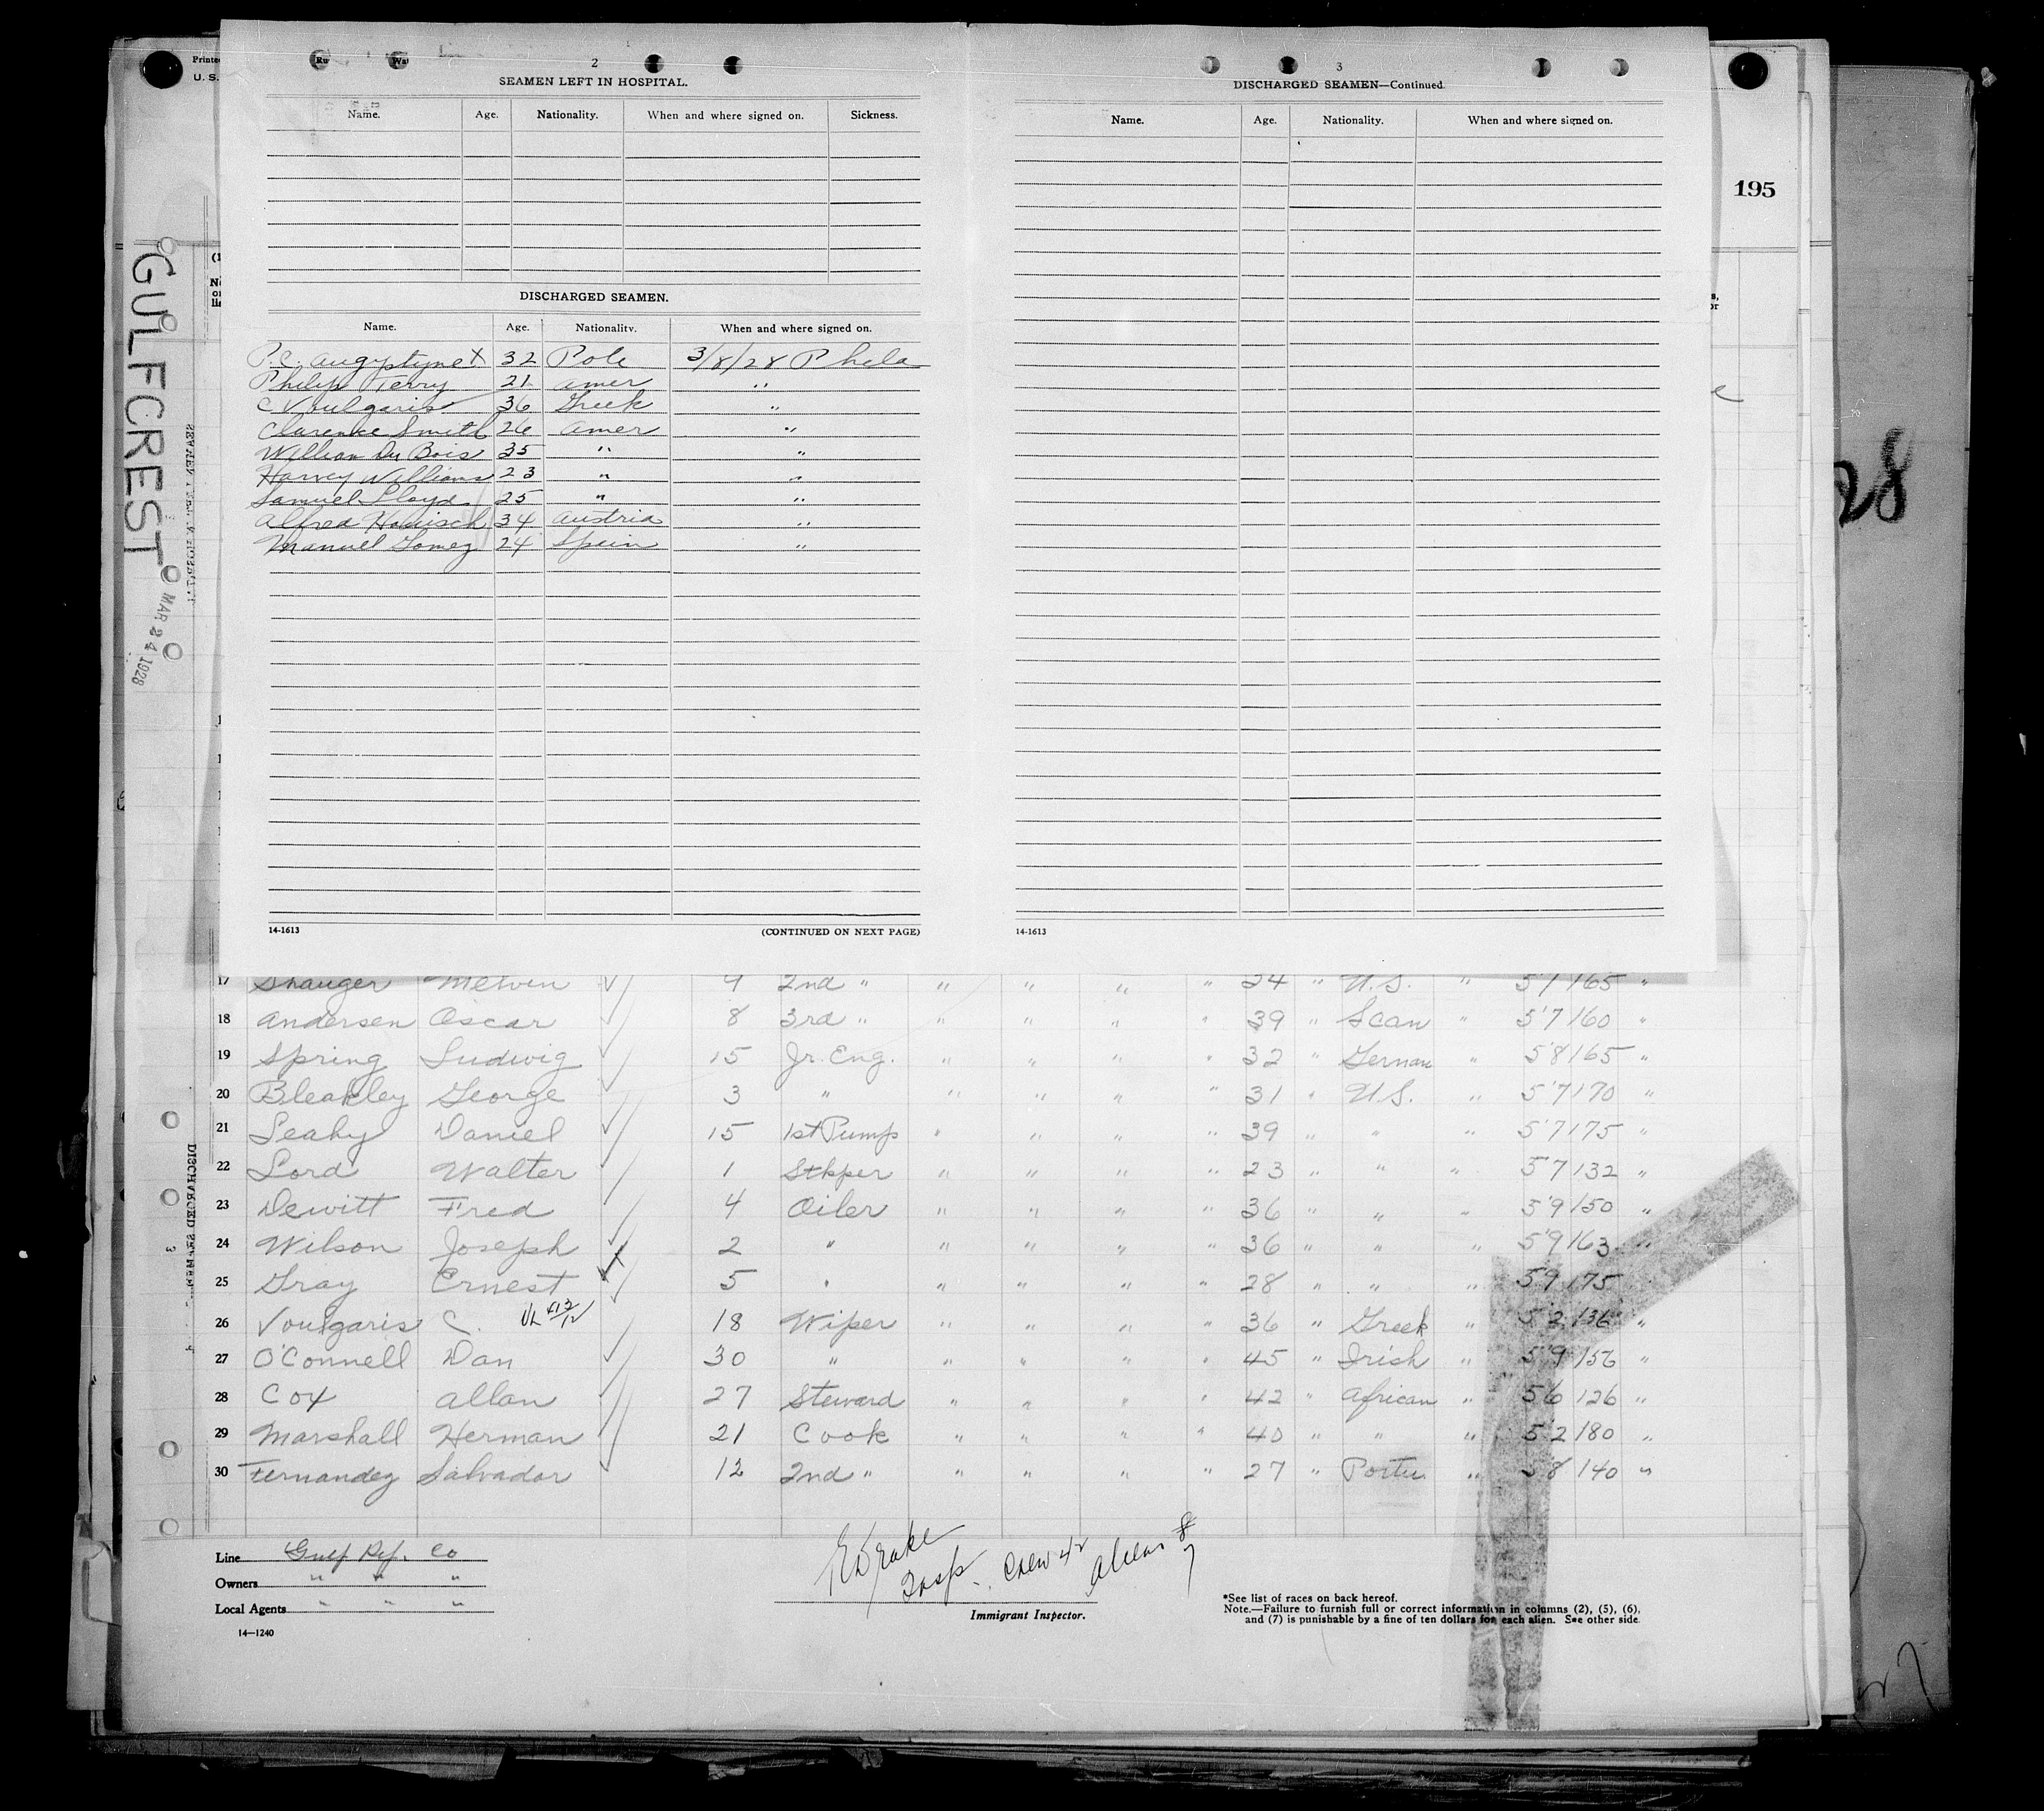 Printed
U. S.
2
SEAMEN LEFT IN HOSPITAL.
Name. Age. Nationality. When and where signed on. Sickness.
DISCHARGED SEAMEN.
Name. Age. Nationality. When and where signed on.
P.C. Augystynet 32 Pole 3/8/28 Phila
Philip Terry 21 Amer "
C Voulgaris 36 Greek "
Clarence Smith 26 Amer "
William Du Bois 35 " "
Harvey Williams 23 " "
Samuel Lloyd 25 " "
Alfred Hanisch 34 Austria "
Manuel Gomez 24 Spain "
14-1613 (CONTINUED ON NEXT PAGE)
3
DISCHARGED SEAMEN—Continued
Name. Age. Nationality. When and where signed on.
14-1613
195
28
GULFCREST
MAR 24 1928
17 Melvin 9 2nd " " " " " 24 " U.S. " 5'7 165 "
18 Andersen Oscar 8 3rd " " " " " 39 " Scan " 5'7 160 "
19 Spring Ludwig 15 Jr. Eng. " " " " 32 " German " 5'8 165 "
20 Bleakley George 3 " " " " " 31 " U.S. " 5'7 170 "
21 Leahy Daniel 15 1st Pump " " " " 39 " " " 5'7 175 "
22 Lord Walter 1 Stkper " " " " 23 " " " 5'7 132 "
23 Dewitt Fred 4 Oiler " " " " 36 " " " 5'9 150 "
24 Wilson Joseph 2 " " " " " 36 " " " 5'9 163 "
25 Gray Ernest 5 " " " " " 28 " " " 5'9 175
26 Voulgaris C. 18 Wiper " " " " 36 " Greek " 5'2 136 "
27 O'Connell Dan 30 " " " " " 45 " Irish " 5'9 156 "
28 Cox Allan 27 Steward " " " " 42 " African " 5'6 126 "
29 Marshall Herman 21 Cook " " " " 40 " " " 5'2 180 "
30 Fernandez Salvador 12 2nd " " " " " 27 " Portu " 5'8 140 "
Line Gulf Ref. Co
Owners " " "
Local Agents " " "
14—1240
Drake
Insp. Crew 42 Aliens 8 7
Immigrant Inspector.
*See list of races on back hereof.
Note.—Failure to furnish full or correct information in columns (2), (5), (6),
and (7) is punishable by a fine of ten dollars for each alien. See other side